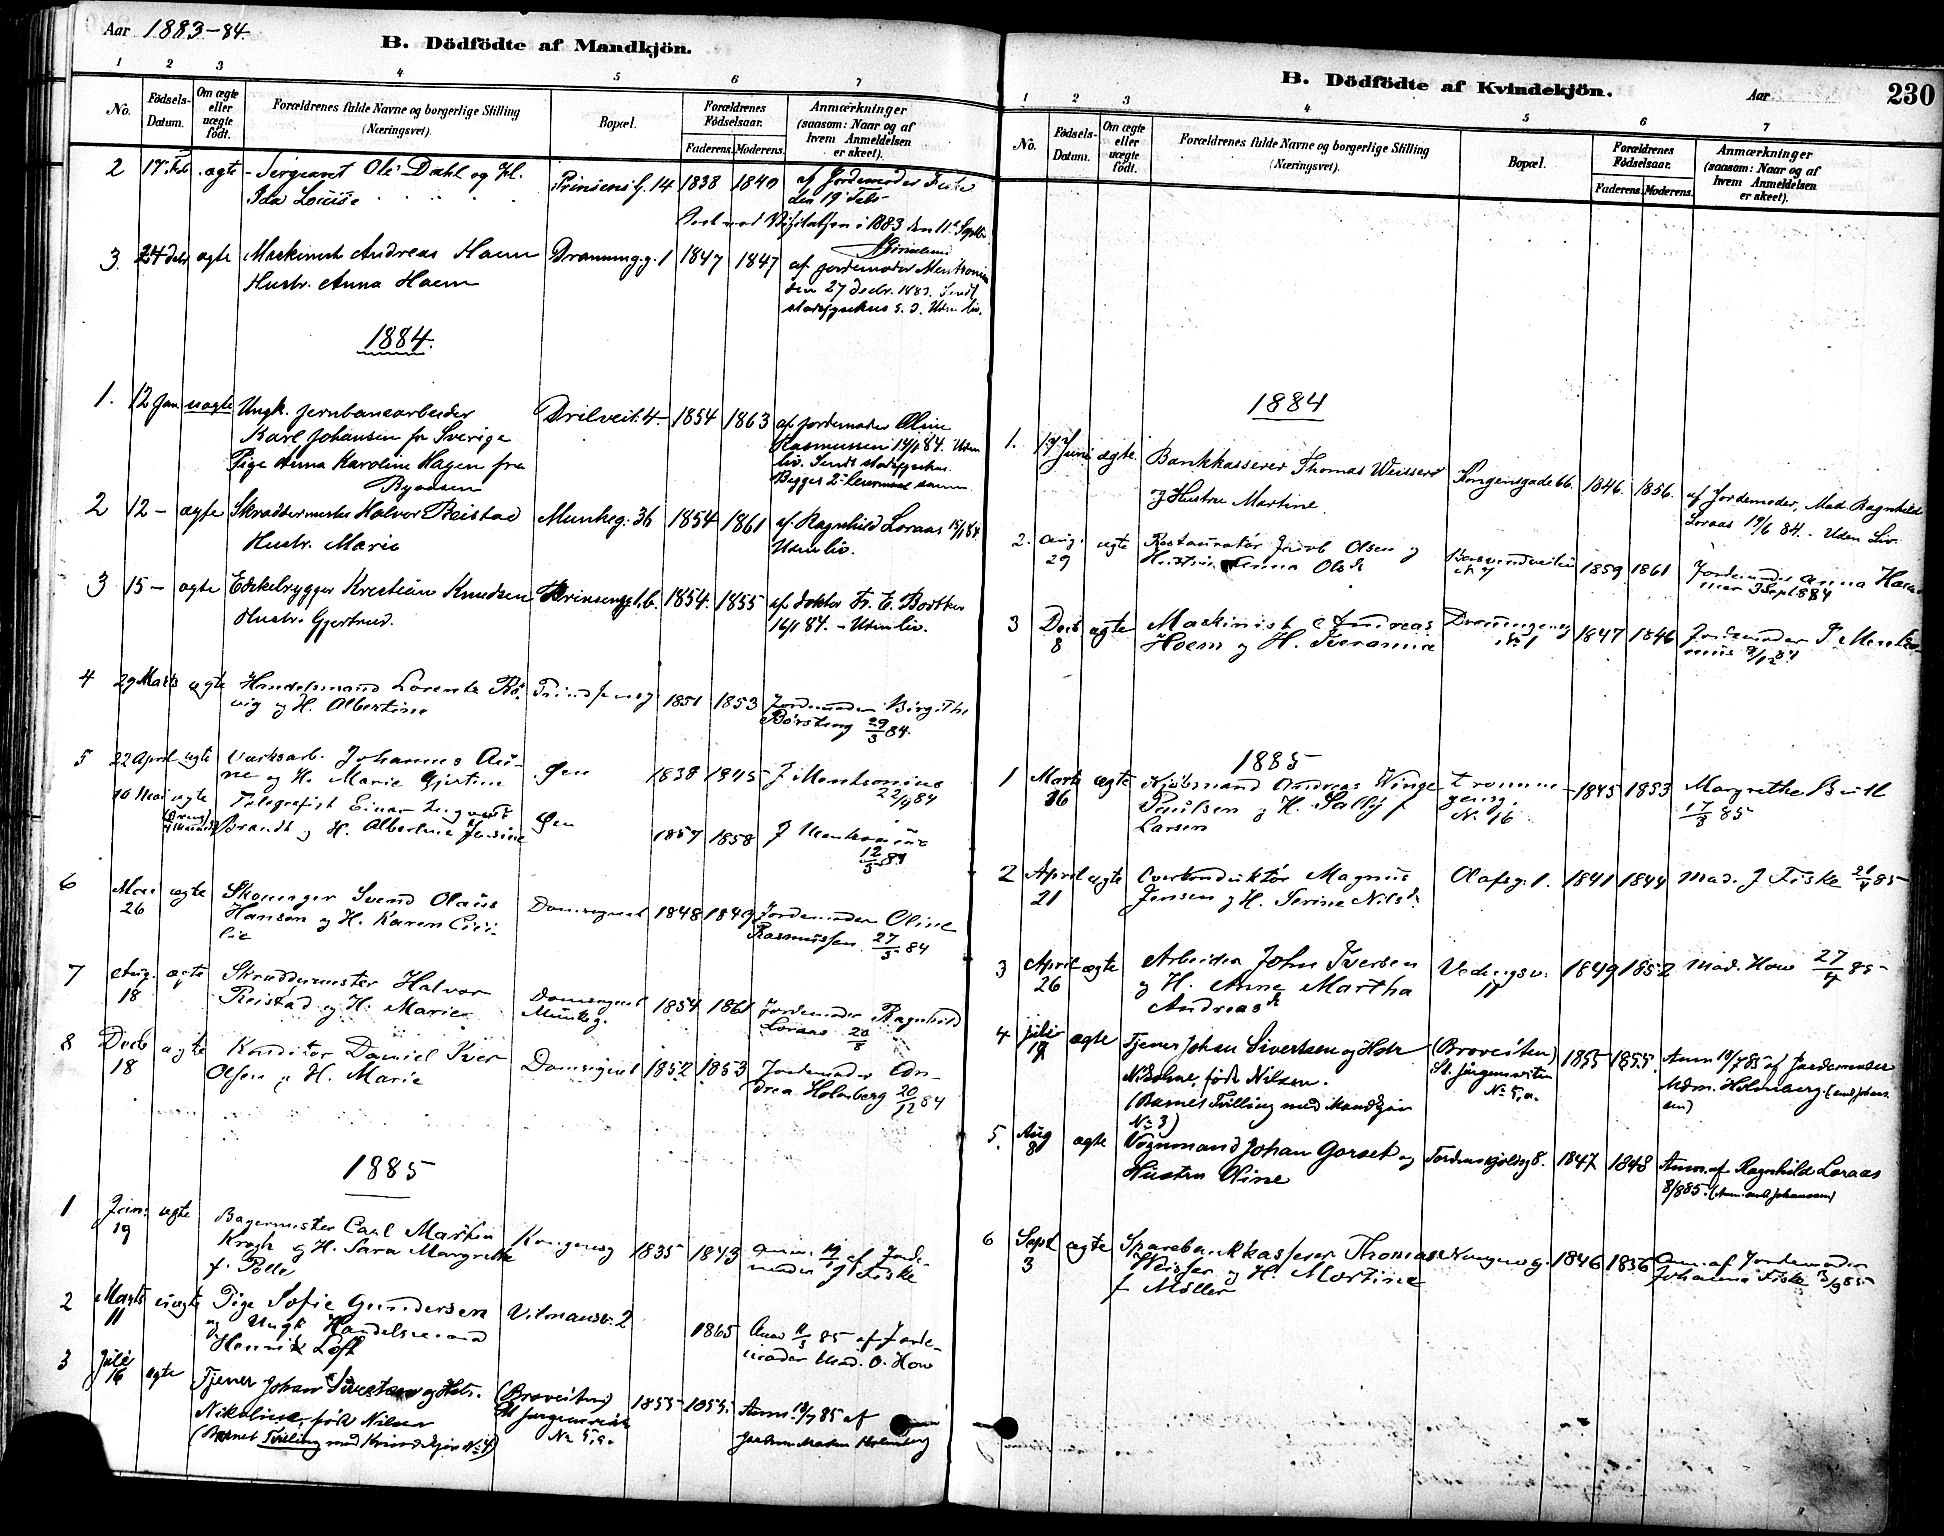 Aar 1883-84.
B. Dödfödte af Mandkjön.
1 2 3 4 5 6 7
No.
Födsels-Datum.
Om ægte eller uægte födt.
Forældrenes fulde Navne og borgerlige Stilling
(Næringsvei).
Bopæl.
Forældrenes Födselsaar.
Faderens. Moderens.
Anmærkninger
(saasom: Naar og af
hvem Anmeldelsen
er skeet).
2 17 Feb. ægte Sergeant Ole Dahl og H. Prinsensg. 14 1838 1840 af Jordemoder Fiske
Ida Louise den 19 Feb.
i 1883 den 11te Septbr.
3. 24 Debr ægte Maskinist Andreas Hoem Dronning.g. 1 1847 1847 af jordemoder Mentzonius
Hustr. Anna Hoem den 27 Decbr. 1883.
Uden liv.
1884.
1. 12 Jan uægte Ungk. jernbanearbeider Drilveit. 4 1854 1863 af jordemoder Oline
Karl Johansen fr Sverige Rasmussen 14/1 84. Uden
Pige Anna Karoline Hagen fra liv.
Byaasen Begges 2det Leiermaal samm.
2 12 – ægte Skræddermester Halvor Reistad Munkeg. 36 1854 1861 af Ragnhild Loraas 15/1 84
Hustr. Marie Uden liv.
3 15 – ægte Edikebrygger Kristian Knudsen Prinsensg. 1b. 1854. 1855 af Doktor Fr. E. Bødtker
Hustr. Gjertrud. 16/1 84. – Uden liv.
4 29 Marts ægte Handelsmand Lorents Rø- Prindsensg 1851 1853 Jordemoder Birgithe
vig og H. Albertine Børsting 29/3 84.
5 22 April ægte Værksarb. Johannes Au- Øen 1838 1845 J Mentzonius
ne og H. Marie Gjertine 22/4 84
10 Mai ægte Telegrafist Einar Ingvart
Brandt og H. Albertine Jensine Øen 1857 1858 J Mentzonius
12/5 84
6 Mai 26 ægte Skomager Svend Olaus Domsognet 1848 1849 Jordemoder Oline
Hansen og H. Karen Ceci- Rasmussen 27/5 84
lie
7 Aug. 18 ægte Skræddermester Halvor Domsognet 1854 1861 Jordemoder Ragnhild
Reistad og H. Marie Munkeg. Loraas 20/8
8 Decb 18 ægte Konditor Daniel Iver Domsognet 1852 1853 Jordemoder An-
Olsen og H. Marie drea Holmberg 20/12 84
1885
1 Jan. 19 ægte Bagermester Carl Martin Kongensg 1835 1843 Anm. 19/1 af Jorde-
Krogh og H. Sara Margrethe moder J Fiske
f. Polle
2 Marts 11 uægte Pige Sofie Gundersen Vilmansv. 2 1865 Anm 11/3 85 af Jorde-
og Ungk Handelsmand moder Mad. O. How
Henrik Loft
3 Juli 16 ægte Tjener Johan Sivertsen og Hstr. (Broveiten) 1855 1855. Anm. 18/7 85 af
Nikoline, født Nilsen St Jørgensveit Jordem. Madm Holmberg
(Barnet Tvilling med Kvindekjøn No 4) No 5, a.
B. Dödfödte af Kvindekjön. Aar 230
1 2 3 4 5 6 7
No.
Födsels-Datum.
Om ægte eller uægte födt.
Forældrenes fulde Navne og borgerlige Stilling
(Næringsvei).
Bopæl.
Forældrenes Födselsaar.
Faderens. Moderens.
Anmærkninger
(saasom: Naar og af
hvem Anmeldelsen
er skeet).
1884
1. 17 Juni ægte. Bankkasserer Thomas Weisser Kongensgade 66. 1846. 1856. af Jordemoder, Mad. Ragnhild
og Hustru Martine. Loraas 19/6 84. – Uden Liv.
2. Aug. 29 ægte Restauratør Jacob Olsen og 1859 1861 Jordemoder Anna
Hustru Anna Olsd. 3 Sept 884
3 Decb 8 ægte Maskinist Andreas Dronningensg 1847 1846 Jordemoder J. Mentzo-
Hoem og H. No 1 nius 9/12 84
1885
1 Marts 16 ægte Kjøbmand Andreas Winge Dronnin- 1845 1853 Margrethe Bull
Poulsen og H. Sally f gensg. 17/3 85
Larsen No 16
2 April 21 ægte Overkonduktør Magnus Olafsg. 1. 1841 1844 Mad. J Fiske 21/4 85
Jensen og H. Serine Nilsd.
3 April 26 ægte Arbeider John Iversen 1849 1852 Mad. How 27/4 85
og H. Anne Martha 17
Andreasd.
4 Juli ægte Tjener Johan Sivertsen og Hstr (Broveiten) 1855 1855. Anm 18/7 85 af Jordemoder
Nikoline, født Nilsen. St. Jørgensveiten Mdm. Holmberg. (
(Barnet Tvilling med Mandkjøn No 5, a.
No 3)
5. Aug 8 ægte Vognmand Johan Gorset og Tordenskjoldsg 8. 1847 1848 Anm. af Ragnhild Loraas
Hustru Oline 8/8 85.
6 Sept 3 ægte Sparebankkasserer Thomas Kongensg. 1846 1856 Anm. af Jordemoder
Weisser og H. Martine Johanna Fiske 3/9 85
f Møller